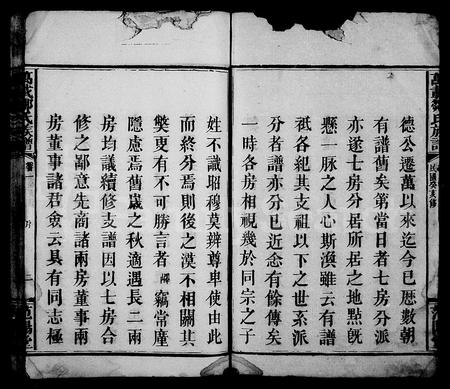 德公遷萬以來迄今已歷數朝
有譜舊矣第當日者七房分派
亦遂七房分居所居之地點旣
懸一脉之人心斯渙雖云有譜
祇各紀其支祖以下之世系派
分者譜亦分已近悆有餘傳矣
一時各房相視幾於同宗之子
姓不識昭穆莫辨尊卑使由此
而終分焉則後之漠不相關其
獘更有不可勝言者 竊常塵
隱慮焉舊嵗之秋適遇長二兩
房均議續修支譜因以七房合
修之鄙意先商諸兩房董事兩
房董事諸君僉云具有同志極
民國癸亥修